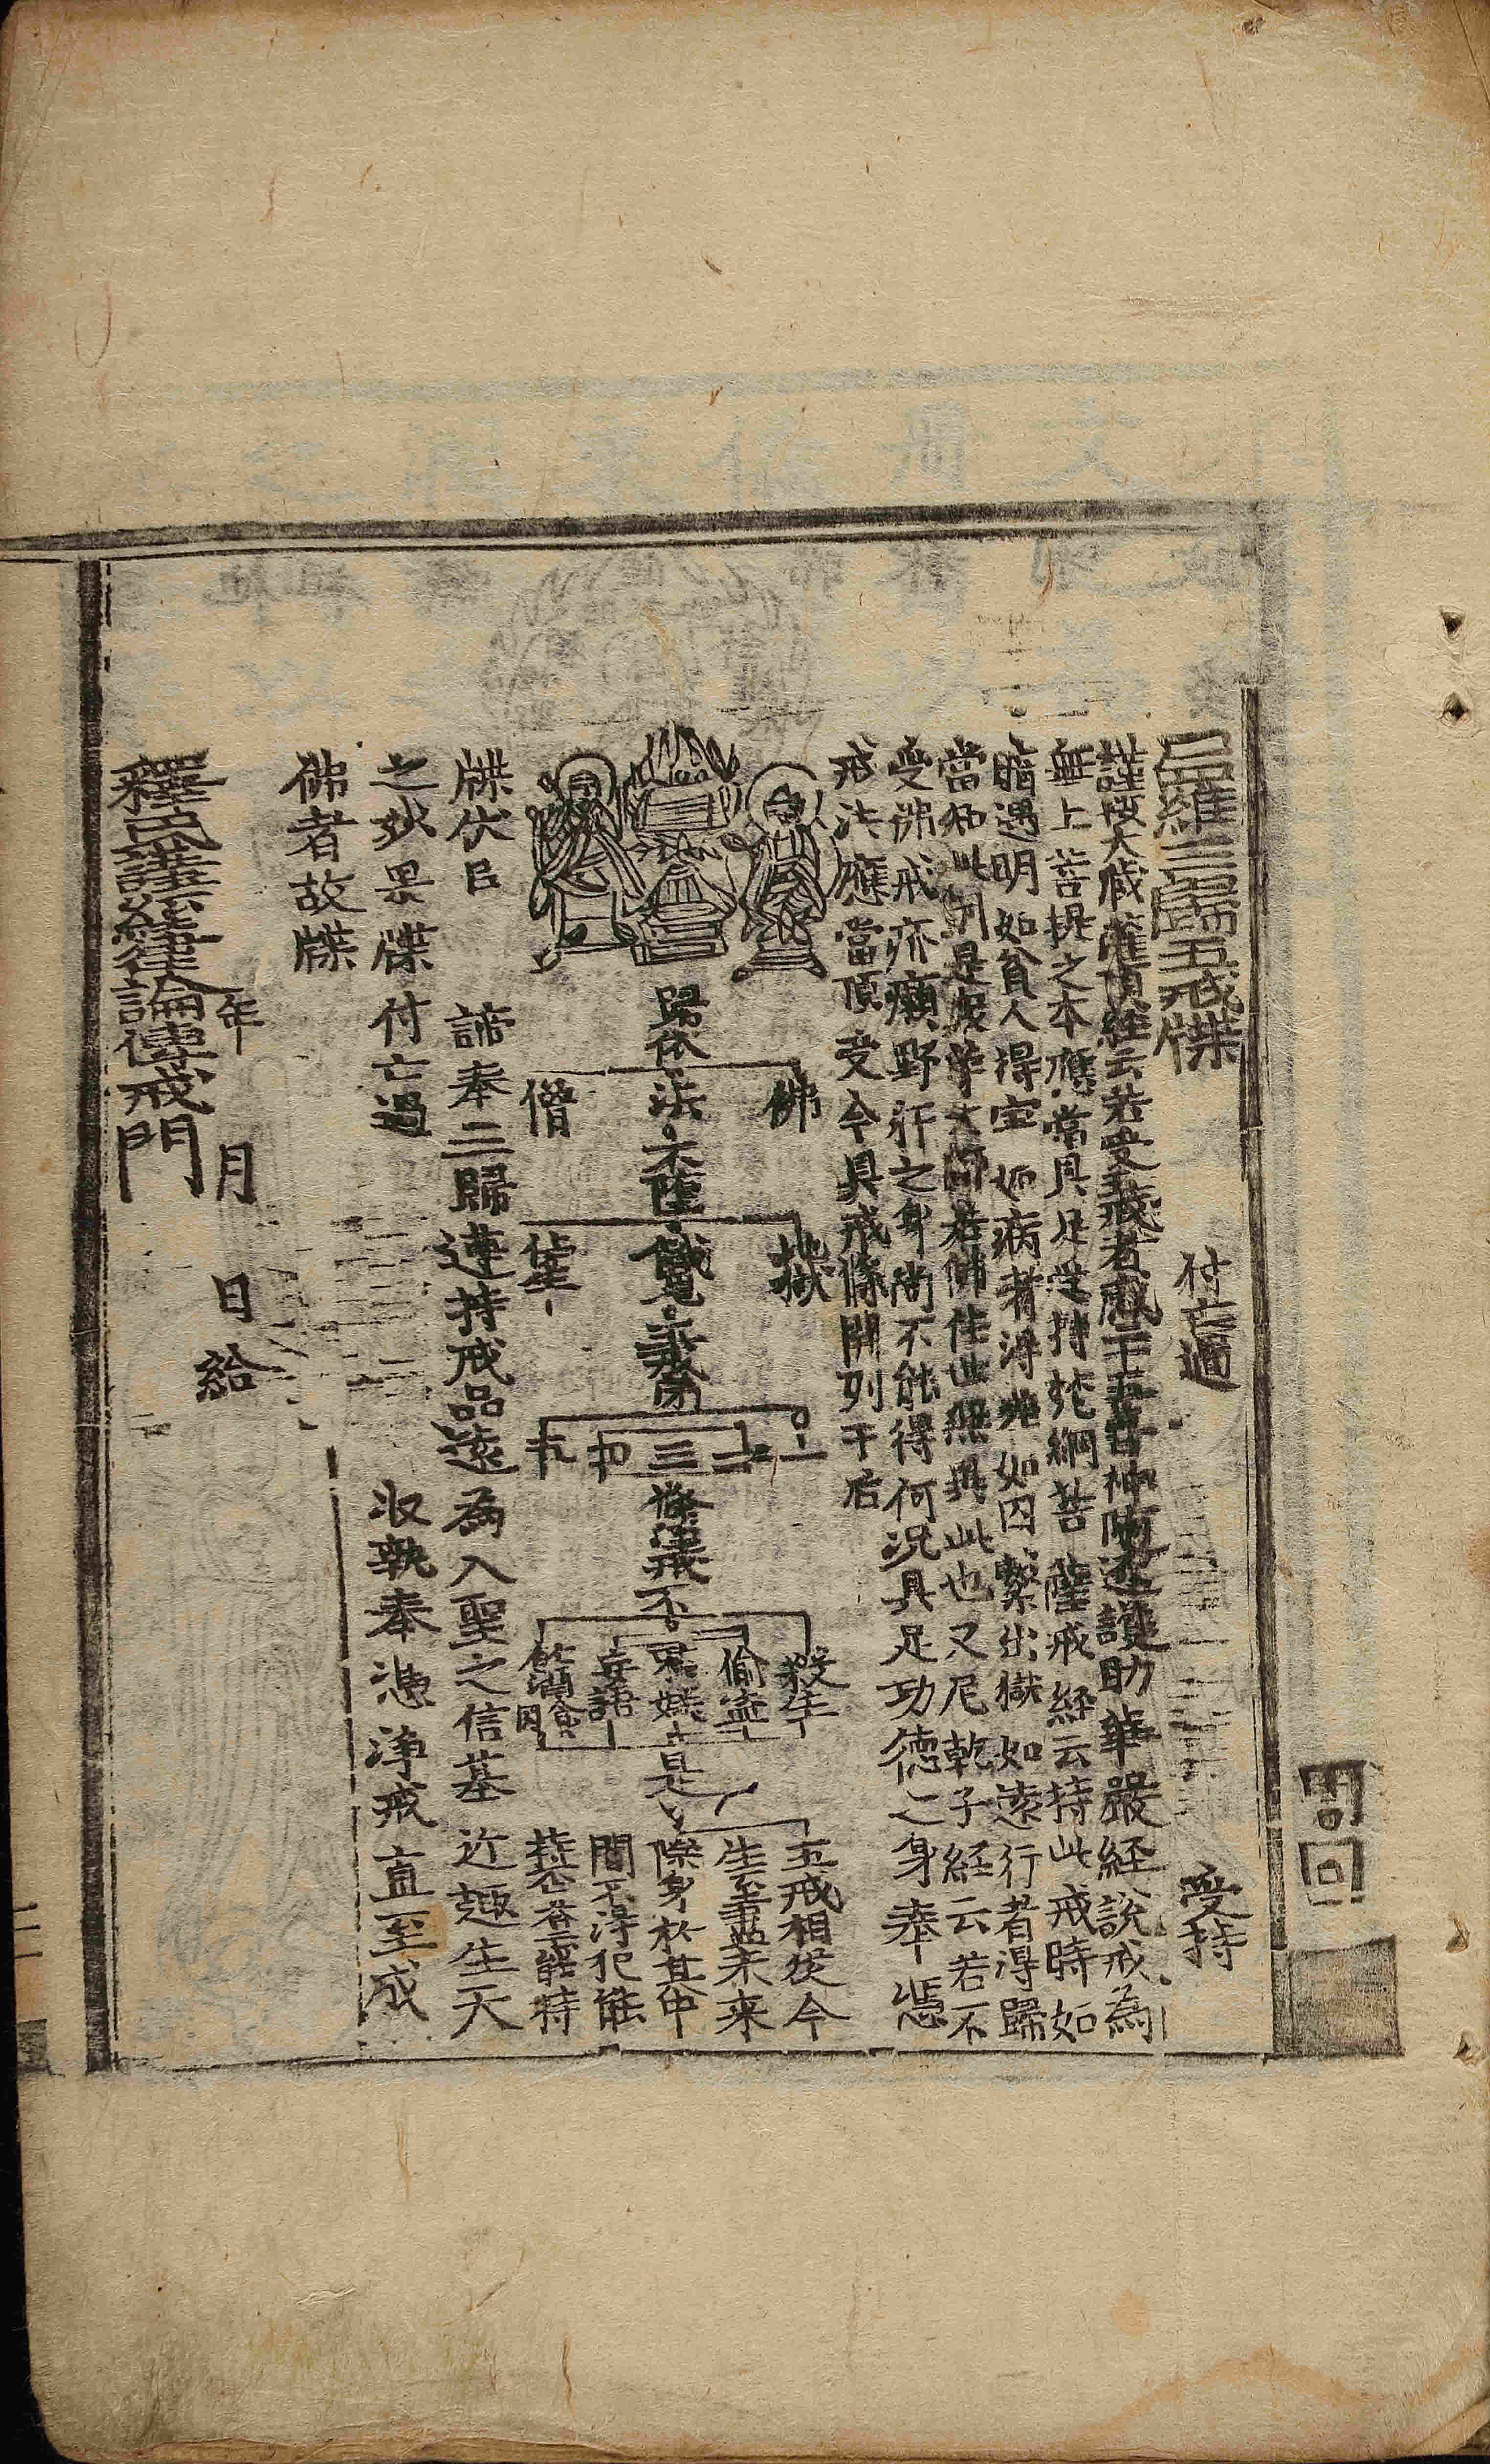 尸羅三歸五戒牒 付亡過 受持
謹按大藏灌頂經云若受五戒者感二十五善神隨逐護助華嚴經說戒為
無上菩提之本應當具足受持梵網菩薩戒經云持此戒時如
暗遇明如貧人得宝如病者得差如囚繫出獄如遠行者得歸
當知此則是衆等大師若佛住世無異此也又尼乾子經云若不
受佛戒疥癩野犴之身尚不能得何況具足功德之身奉憑
戒法應當頂受今具戒條開列于后
歸依
佛
法
僧
不墮
獄
餓鬼
第
一
二
三
四
五
條淨戒不
殺生
偷盗
妄語
是
五戒相從今
生至盡未来
際身於其中
間不得犯能
持否答云能持
牒伏目 諦奉三歸蓮持戒品遠為入聖之信基近趣生天
之妙果牒付亡過 收執奉憑淨戒直至成
佛者故牒
年 月 日給
釋氏講經律論傳戒門